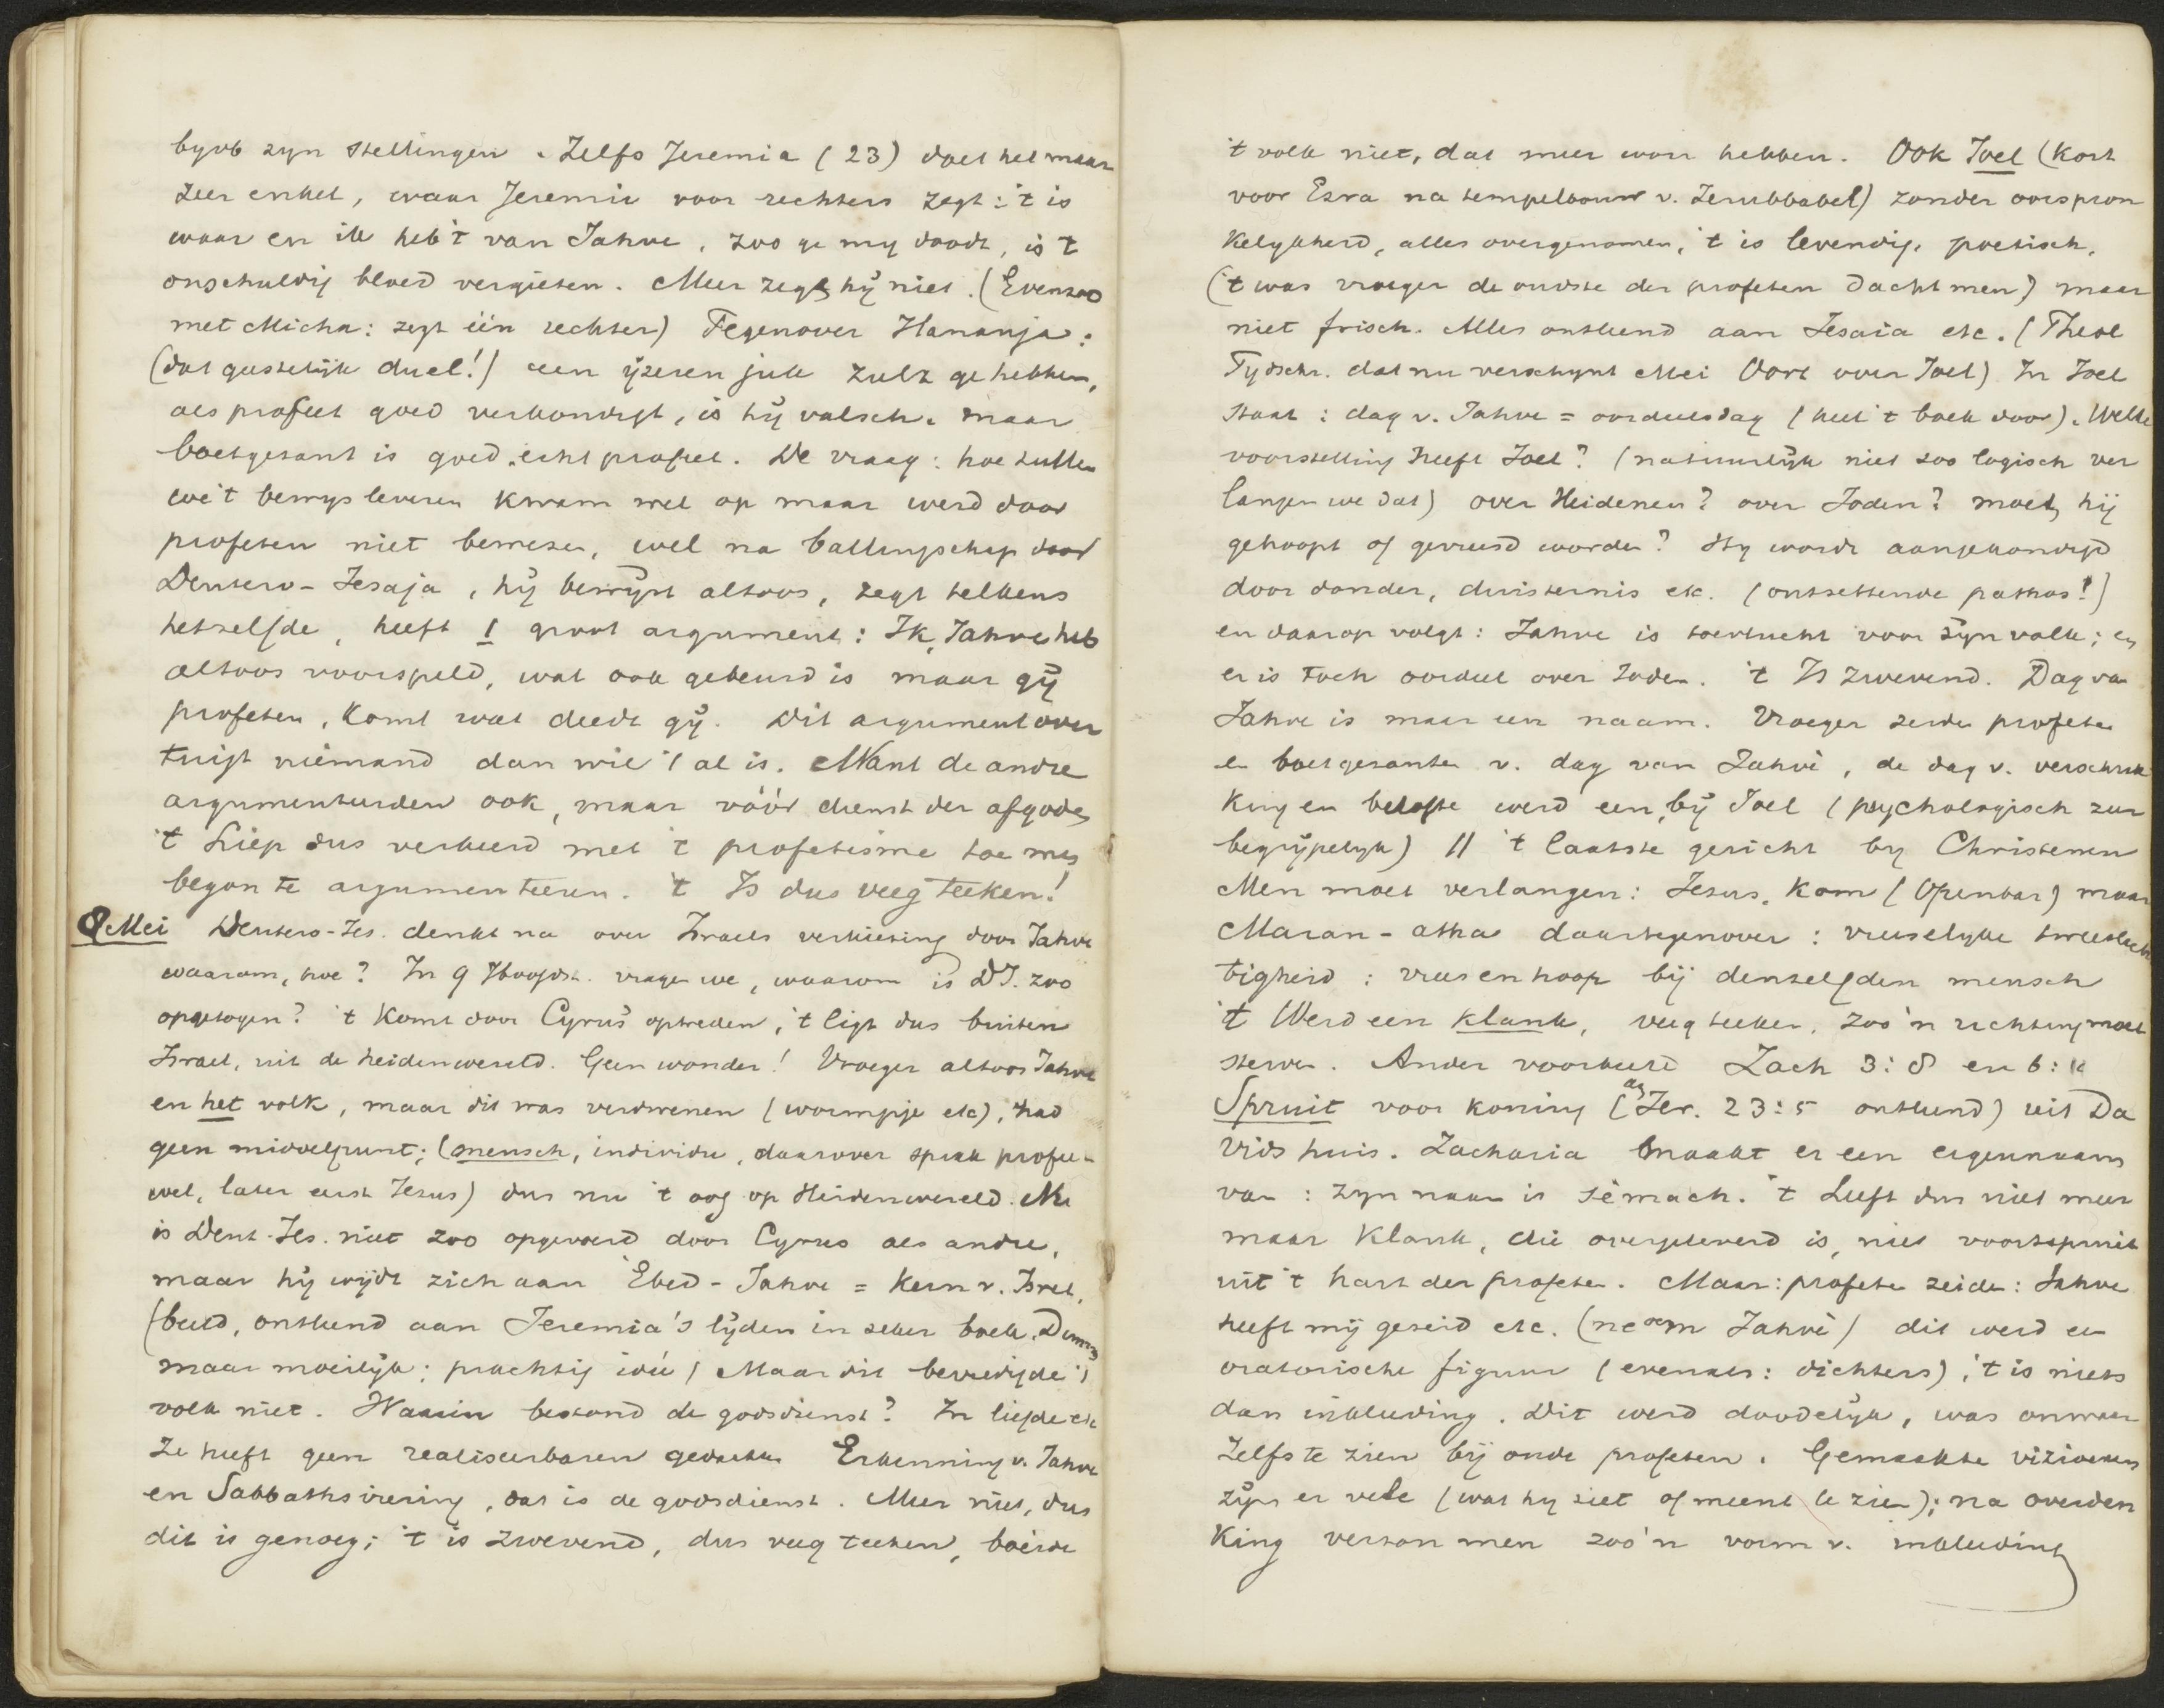 byvb zyn stellingen. Zelfs Jeremia (23) doet het maar
zeer enkel, waar Jeremia voor rechters zegt: 't is
waar en ik heb 't van Jahve, zoo ge my doodt, is 't
onschuldig bloed vergieten. Meer zegt hÿ niet. (Evenzoo
met Micha: zegt één rechter) Tegenover Hananja:
(dat geestelÿk duel!) een ÿzeren juk zult ge hebben,
als profeet goed verkondigt, is hÿ valsch. maar
boetgezant is goed, echt profeet. De vraag: hoe zullen
we 't bewys leveren kwam wel op maar werd door
profeten niet bewezen, wel na ballingschap door
Deutero-Jesaja, hÿ bewÿst altoos, zegt telkens
hetzelfde, heeft 1 groot argument: Ik, Jahve heb
altoos voorspeld, wat ook gebeurd is maar gÿ
profeten, komt wat deedt gÿ. Dit argument over
tuigt niemand dan wie 't al is. Want de andre
argumenteerden ook, maar vóór dienst der afgoden
't Liep dus verkeerd met 't profetisme toe men
begon te argumenteeren. 't Is dus veeg teeken!
8 Mei Deutero-Jes. denkt na over Israels verkiezing door Jahve
waarom, hoe? In 9 hoofdst. vragen we, waarom is DJ. zoo
opgetogen? 't Komt door Cyrus' optreden, 't ligt dus buiten
Israel, uit de heidenwereld. Geen wonder! Vroeger altoos Jahve
en het volk, maar dit was verdwenen (wormpje etc), 't had
geen middelpunt; (mensch, individu, daarover sprak profeet
wel, later eerst Jezus) dus nu 't oog op Heidenwereld. Nu
is Deut-Jes. niet zoo opgevoerd door Cyrus als andre,
maar hÿ wÿdt zich aan Ebed-Jahve = kern v. Isrel,
(beeld, ontleend aan Jeremia's lÿden in zeker boek.
maar moeilÿk; prachtig idee) Maar dit bevredigde 't
volk niet. Waarin bestond de godsdienst? In liefde etc
Ze heeft geen realiseerbaren gedachten Erkenning v. Jahve
en Sabbathsviering, dat is de godsdienst. Meer niet, dus
dit is genoeg; 't is zwevend, dus veeg teeken, boeide
't volk niet, dat meer wou hebben. Ook Joel (kort
voor Ezra na tempelbouw v. Zerubbabel) zonder oorspron
kelykheid, alles overgenomen, 't is levendig, poetisch,
('t was vroeger de oudste der profeten dacht men) maar
niet frisch. Alles ontleend aan Jesaia etc. (Theol
Tydschr. dat nu verschynt Mei Oort over Joel) In Joel
staat: dag v. Jahve = oordeelsdag (heel 't boek door). Welke
voorstelling heeft Joel? (natuurlÿk niet zoo logisch ver
langen we dat) over Heidenen? over Joden? moet hij
gehoopt of gevreesd worden? Hy wordt aangekondigd
door donder, duisternis etc. (ontzettende pathos!)
en daarop volgt: Jahve is toevlucht voor zÿn volk; en
er is toch oordeel over Joden. 't Is zwevend. Dag van
Jahve is maar een naam. Vroeger zeiden profeten
en boetgezanten v. dag van Jahvè, de dag v. verschrik
king en belofte werd een, bÿ Joel (psychologisch zeer
begrÿpelyk) // 't laatste gericht by Christenen
Men moet verlangen: Jezus, kom (Openbar) maar
Maran-atha daartegenover: vreeselyke tweeslach
tigheid: vrees en hoop bÿ denzelfden mensch
't Werd een klank, veeg teeken, zoo'n richting moet
sterven. Ander voorbeeld Zach 3:8 en 6:12
Spruit voor koning (als Jer. 23:5 ontleend) uit Da
vids huis. Zacharia maakt er een eigennaam
van: zyn naam is sèmach. 't Leeft dus niet meer
maar klank, die overgeleverd is, niet voortspruit
uit 't hart der profeten. Maar: profeten zeiden: Jahve
heeft mÿ gezeid etc. (neoem Jahvè) dit werd een
oratorische figuur (evenals: dichters), 't is niets
dan inkleeding. Dit werd doodelÿk, was onwaar
Zelfs te zien bÿ oude profeten. Gemaakte vizioenen
zÿn er vele (wat hy ziet of meent te zien); na overden
king verzon men zoo'n vorm v. inkleeding